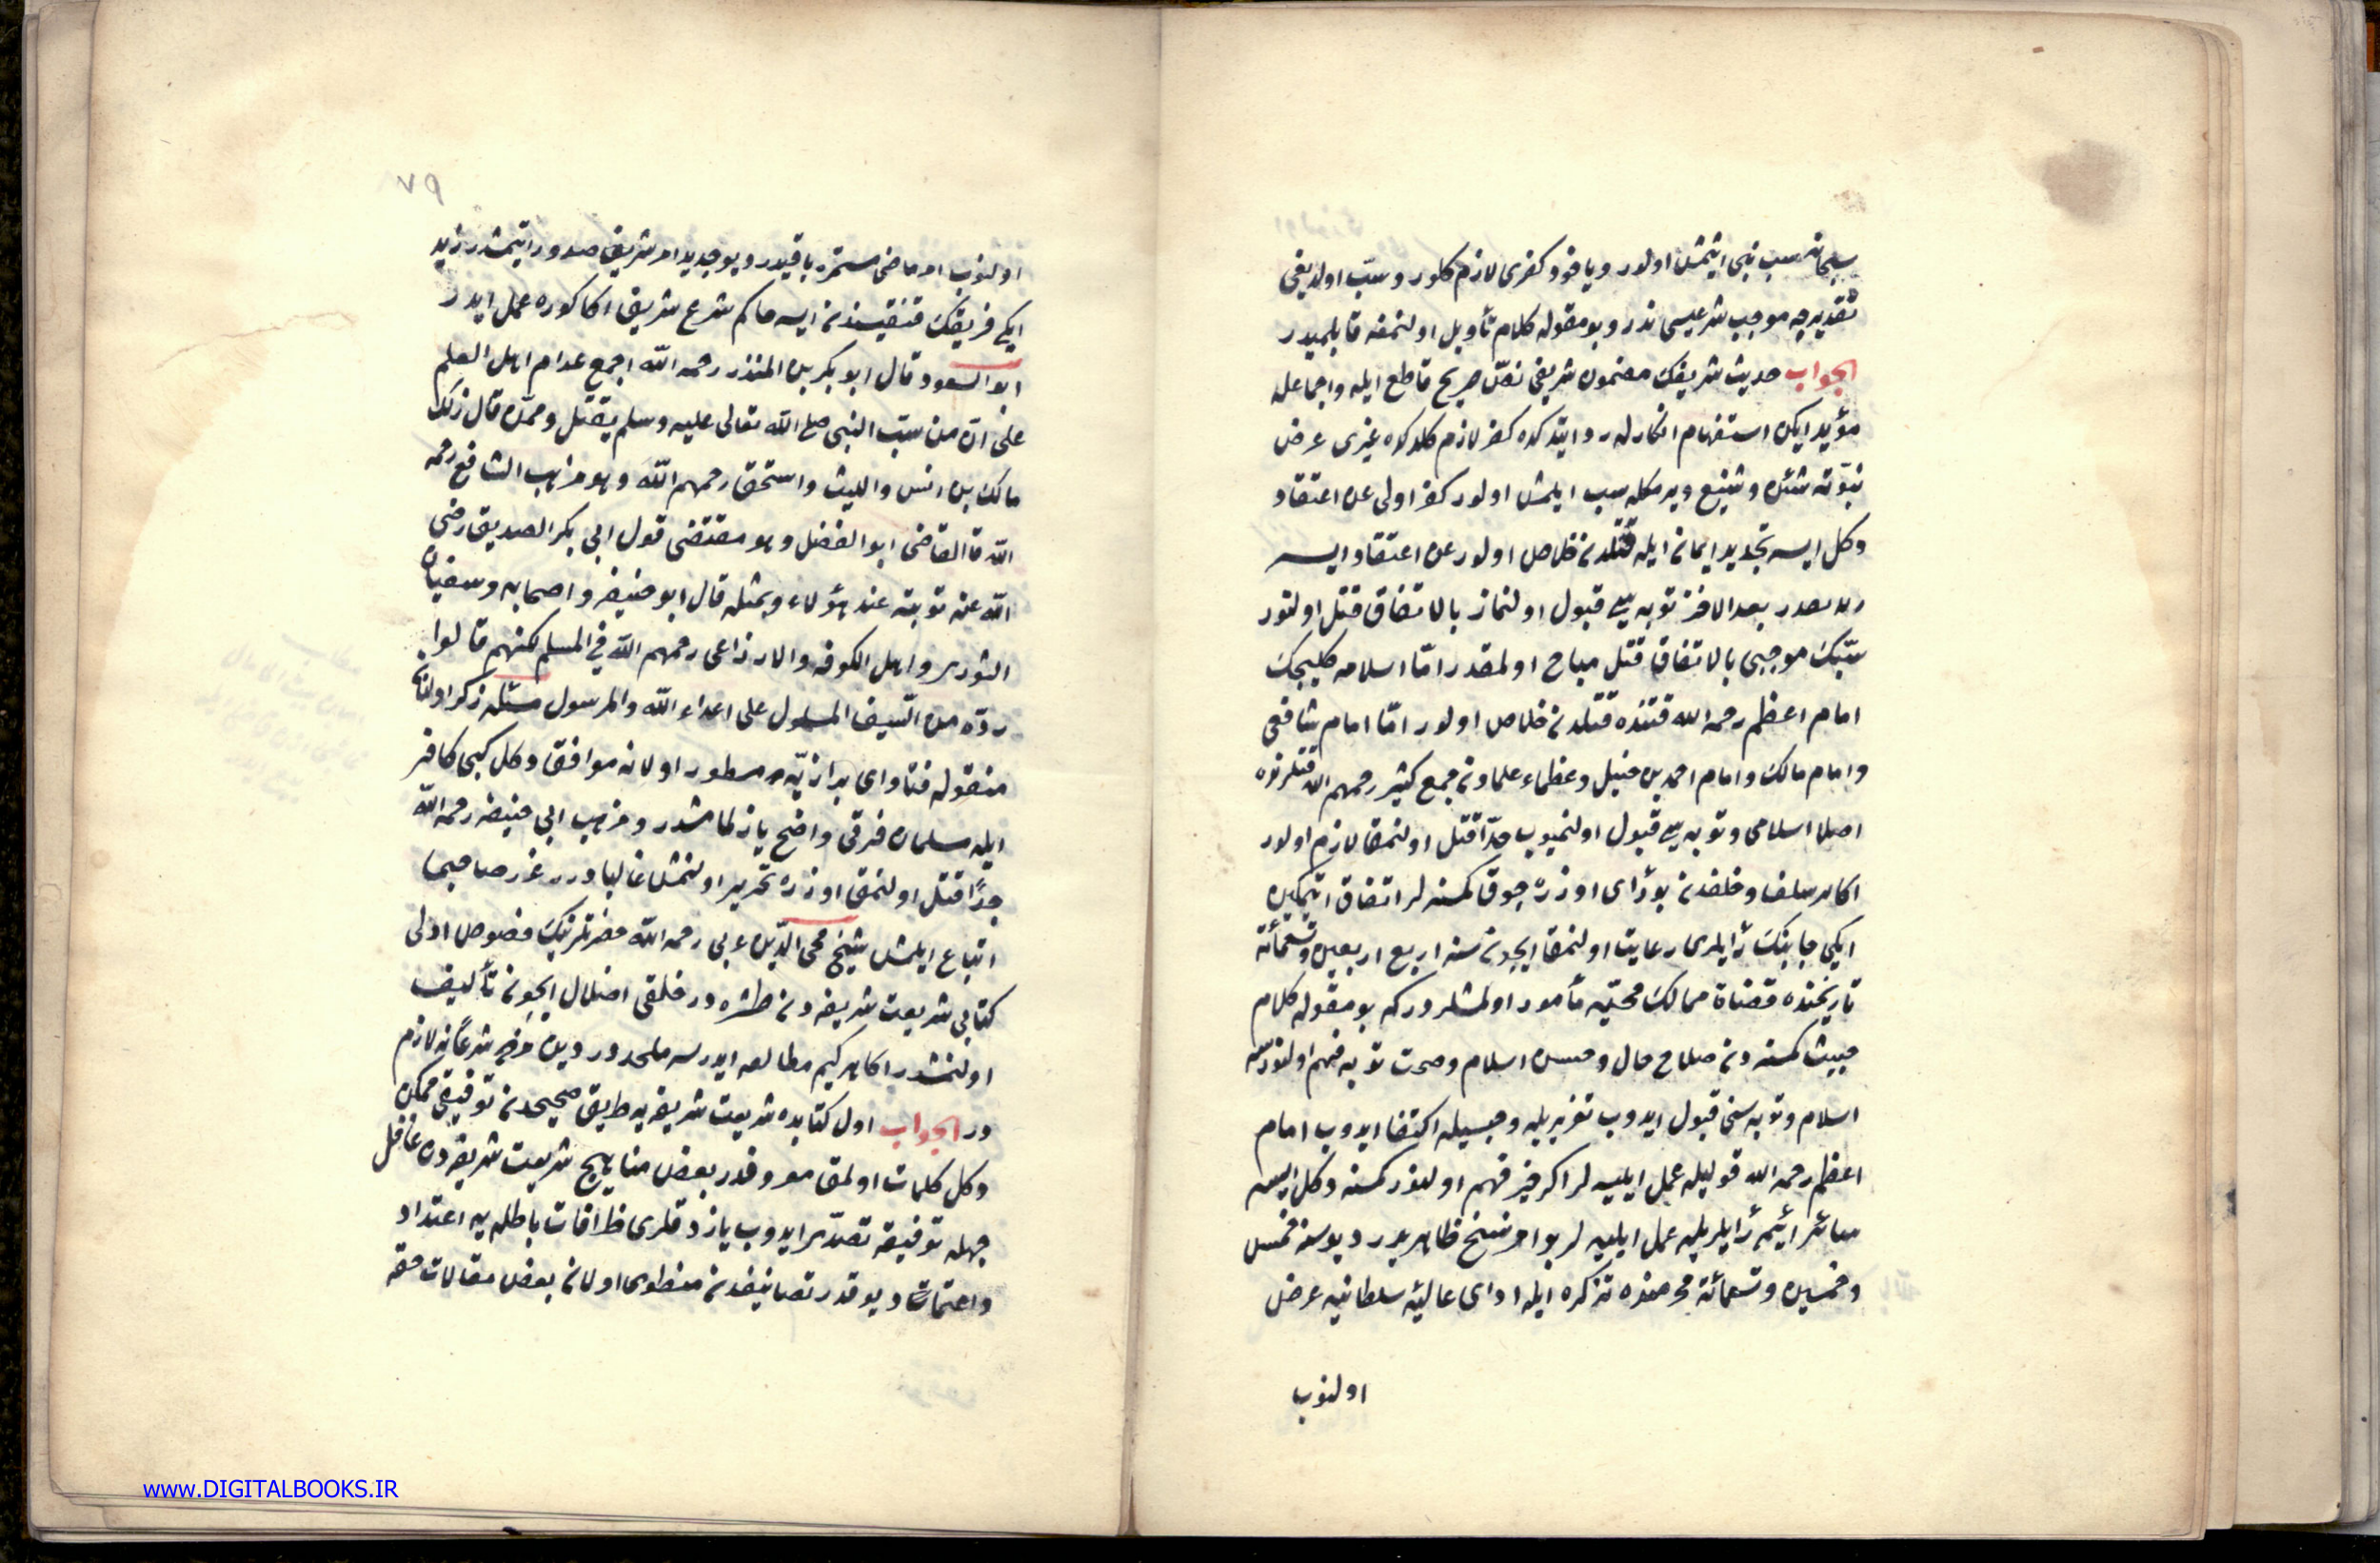 سبحانه سب نبی ایتمش اولور ویاخود کفری لازم کلور و سبّ اولدیغی
تقدیرجه موجب شرعیسی ندر و بو مقوله کلام تأویل اولنمغه قابلمیدر
الجواب حدیث شریفك مضمون شریفی نصّ صریح قاطع ایله واجماعله
مؤید ایکن استفهام انکارله رد ایتدکده کفر لازم کلدکدن غیری عرض
نبوّته شین و شنیع ویرمکله سب ایلمش اولور کفر اولی عن اعتقاد
دکل ایسه تجدید ایمان ایله قتلدن خلاص اولور عن اعتقاد ایسه
بعد الاخذ توبه سی قبول اولنماز بالاتفاق قتل اولنور
سبّك موجبی بالاتفاق قتل مباح اولمقدر امّا اسلامه کلیجك
امام اعظم رحمه الله قتنده قتلدن خلاص اولور امّا امام شافعی
وامام مالك وامام احمد بن حنبل وعظماء علمادن جمع کثیر رحمهم الله قتلرنده
اصلا اسلامی و توبه سی قبول اولنمیوب حدّا قتل اولنمق لازم اولور
اکابر سلف و خلفدن بو رأی اوزره چوق کمسنه لر اتفاق اتمکین
ایکی جانبك رأیلری رعایت اولنمق ایچون سنه اربع اربعین وتسعمائه
تاریخنده قضاة ممالك محمیّه مأمور اولمشلردرکه بو مقوله کلام
خبیث کمسنه دن صلاح حال و حسن اسلام وصحت توبه فهم اولنورسه
اسلام و توبه سنی قبول ایدوب تعزیریله و حبسیله اکتفا ایدوب امام
اعظم رحمه الله قولیله عمل ایلیه لر اکر خیر فهم اولنور کمسنه دکل ایسه
سائر ائمه رأیلریله عمل ایلیه لر بو امر نسخ ظاهر یدر دیو سنه خمس
و خمسین و تسعمائة محرمنده تذکره ایله ادای عالیهٔ سلطانیه عرض
اولنوب
٧٩
اولنوب امر ماضی مستمره باقیدر دیو جدید امر شریف صدور ایتمشدر زید
ایکی فریقك قنقیسندن ایسه حاکم شرع شریف اکا کوره عمل ایدر
ابو السعود قال ابو بکر بن المنذر رحمه الله اجمع عوام اهل العلم
علی انّ من سبّ النبی صلی الله تعالی علیه وسلم یقتل وممّن قال ذلك
مالك بن انس واللیث واسحق رحمهم الله وهو مذهب الشافعی رحمه
الله قا القاضی ابو الفضل وهو مقتضی قول ابی بکر الصدیق رضی
الله عنه توبته عند هؤلاء وبمثله قال ابو حنیفه واصحابه وسفیان
الثوری واهل الکوفه والاوزاعی رحمهم الله فی المسلم لکنهم قالوا
ردّه من السّیف المسلول علی اعداء الله والرسول مسئله ذکر اولنان
منقوله فتاوای بزازیّه مسطور اولانه موافق دکل کبی کافر
ایله مسلمان فرقی واضح یازلمامشدر و مذهب ابی حنیفه رحمه الله
حدًّا قتل اولنمق اوزره تحریر اولنمش غالبا درر غرر صاحبی
اتباع ایلمش شیخ محی الدّین عربی رحمه الله حضرتلرینك فصوص ادلی
کتابی شریعت شریفه دن طشره در خلقی اضلال ایچون تألیف
اولنمشدر اکابر کیم مطالعه ایدرسه ملحددر دین شرعًا نه لازم
در الجواب اول کتابده شریعت شریفه یه طریق صحیحدن توفیقی ممکن
دکل کلمات اولمق معروفدر بعض مناهج شریعت شریفه دن غافل
جهله توفیقه تصدّی ایدوب یازدقلری خرافات باطله یه اعتداد
واعتماد دیو قدر تصانیفدن منطوی اولان بعض مقالات حقه
www.DIGITALBOOKS.IR